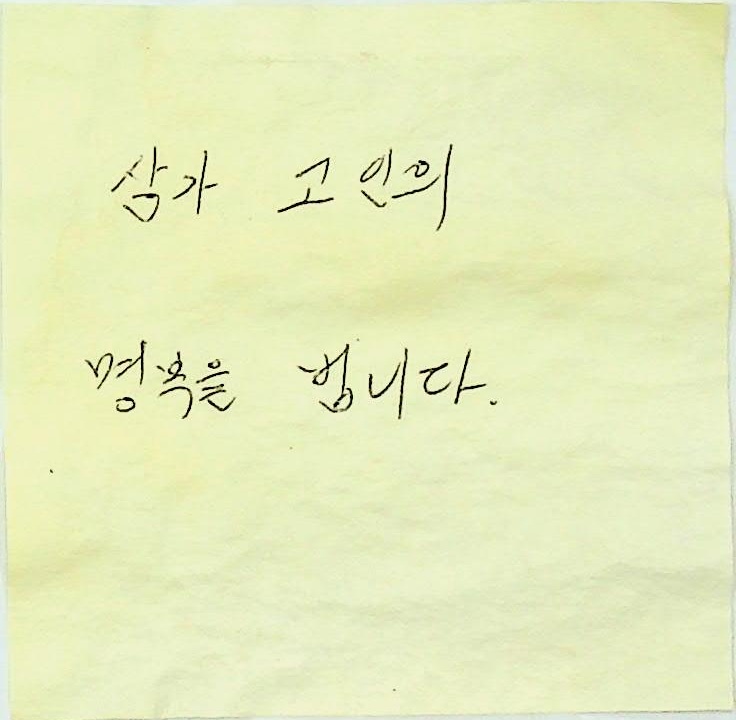 삼가 고인의
명복을 빕니다.